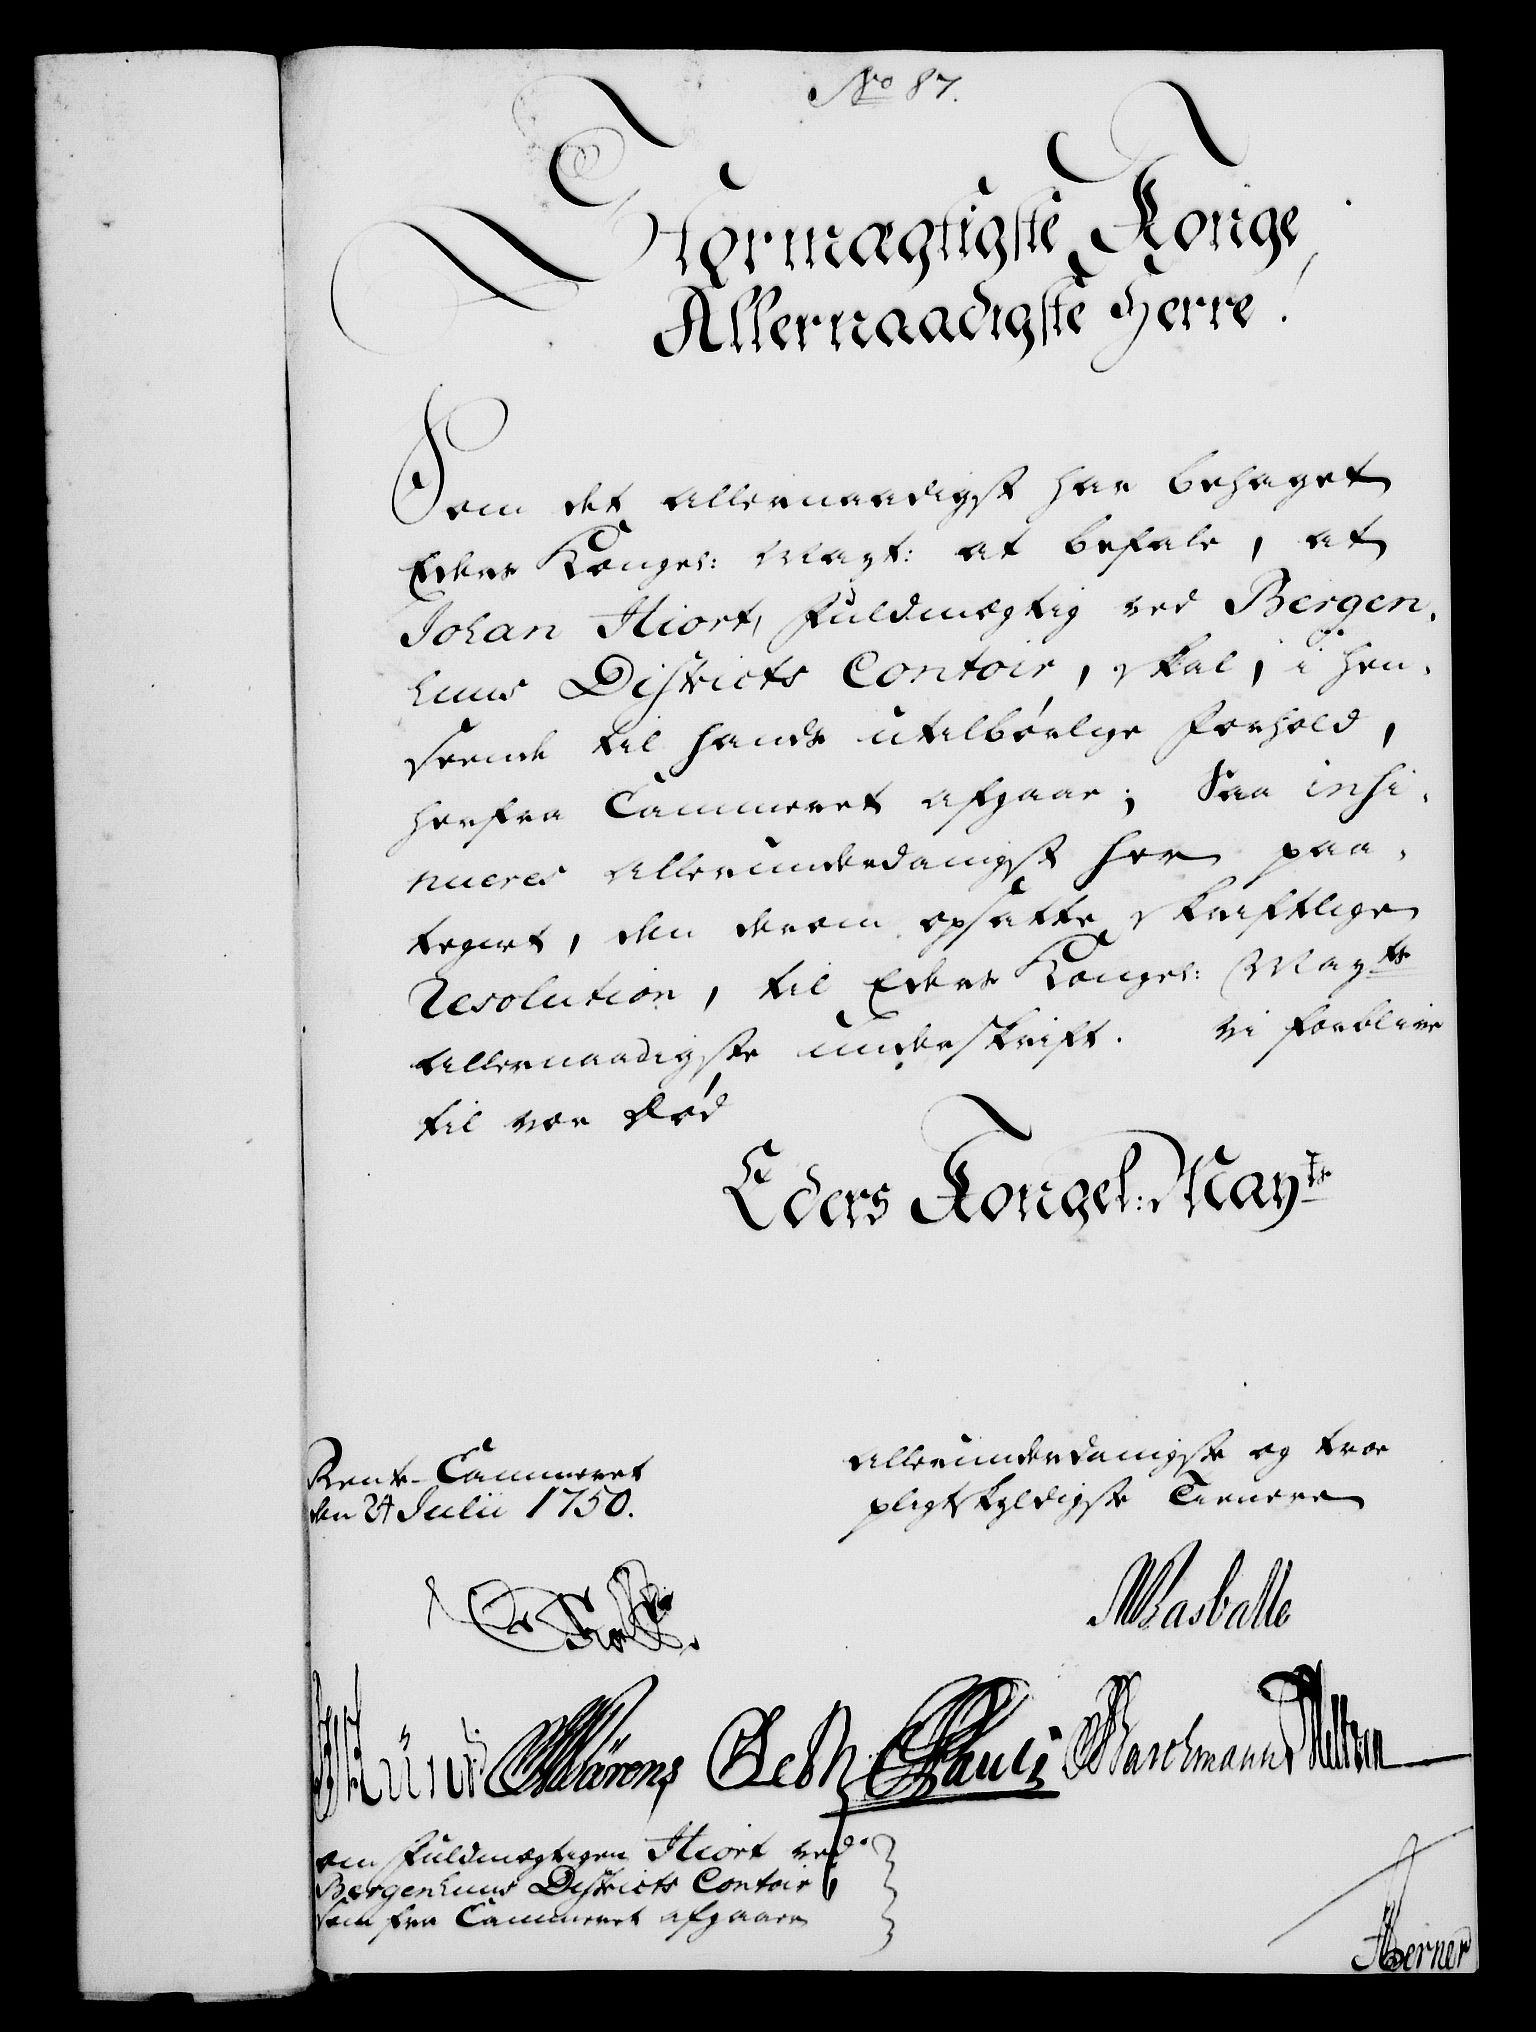 No 87.
Stormægtigste Konge,
Allernaadigste Herre!
Som det allernaadigst har behaget
Eders Kongel: Mayt: at befale, at
Johan Hiort, Fuldmægtig ved Bergen-
huus Districts Contoir, skal, i hen-
seende til hands utilbörlige Forhold,
herfra Cammeret afgaae; Saa insi-
nueres allerunderdanigst her paa-
tegnet, den derom opsatte skriftlige
Resolution, til Eders Kongel: Mayts
allernaadigste underskrift. Vi forblive
til vor Död
Eders Kongel: Mayts
Rente-Cammeret
den 24 Julii 1750.
allerunderdanigste og troe
pligtskyldigste Tienere
Wasballe
Wärens Pauli
om Fuldmægtigen Hiort ved
Bergenhuus Districts Contoir
som fra Cammeret afgaaer